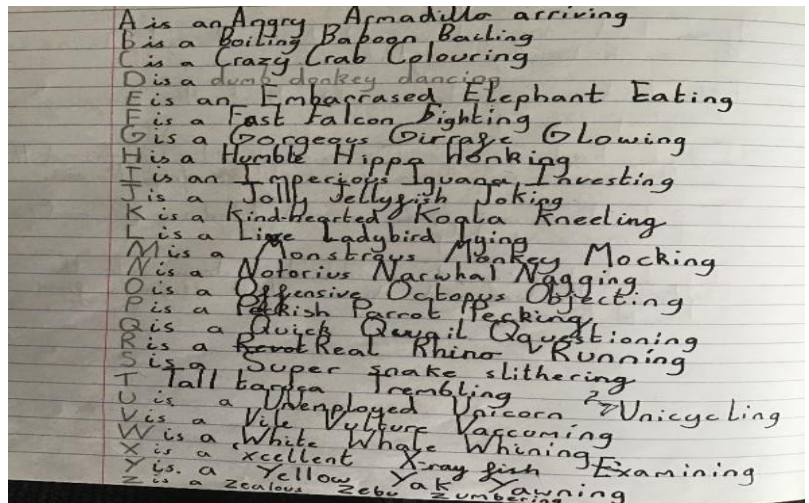 A is an Angry Armadillo arriving
B is a Boiling Baboon Backing
C is a Crazy Crab Colouring
D is a dumb donkey dancing
E is an Embarrased Elephant Eating
F is a Fast Falcon Fighting
G is a Gorgeous Girrafe Glowing
H is a Humble Hippo Honking
I is an Imperious Iguana Investing
J is a Jolly Jellyfish Joking
K is a Kind-hearted Koala Kneeling
L is a Ladybird Lying
M is a Monstrous Monkey Mocking
N is a Notorius Narwhal Nagging
O is a Offensive Octopus Objecting
P is a Parrot Pecking
Q is a Quick Quail Qquestioning
R is a Real Rhino Running
S is a Super snake slithering
T Tall Trembling
U is a Unemployed Unicorn Unicycling
V is a Vile Vulture Vaccuming
W is a White Whale Whining
X is a xcellent X-ray fish Examining
Y is a Yellow Yak Yawning
Z is a zealous zebu zumbering